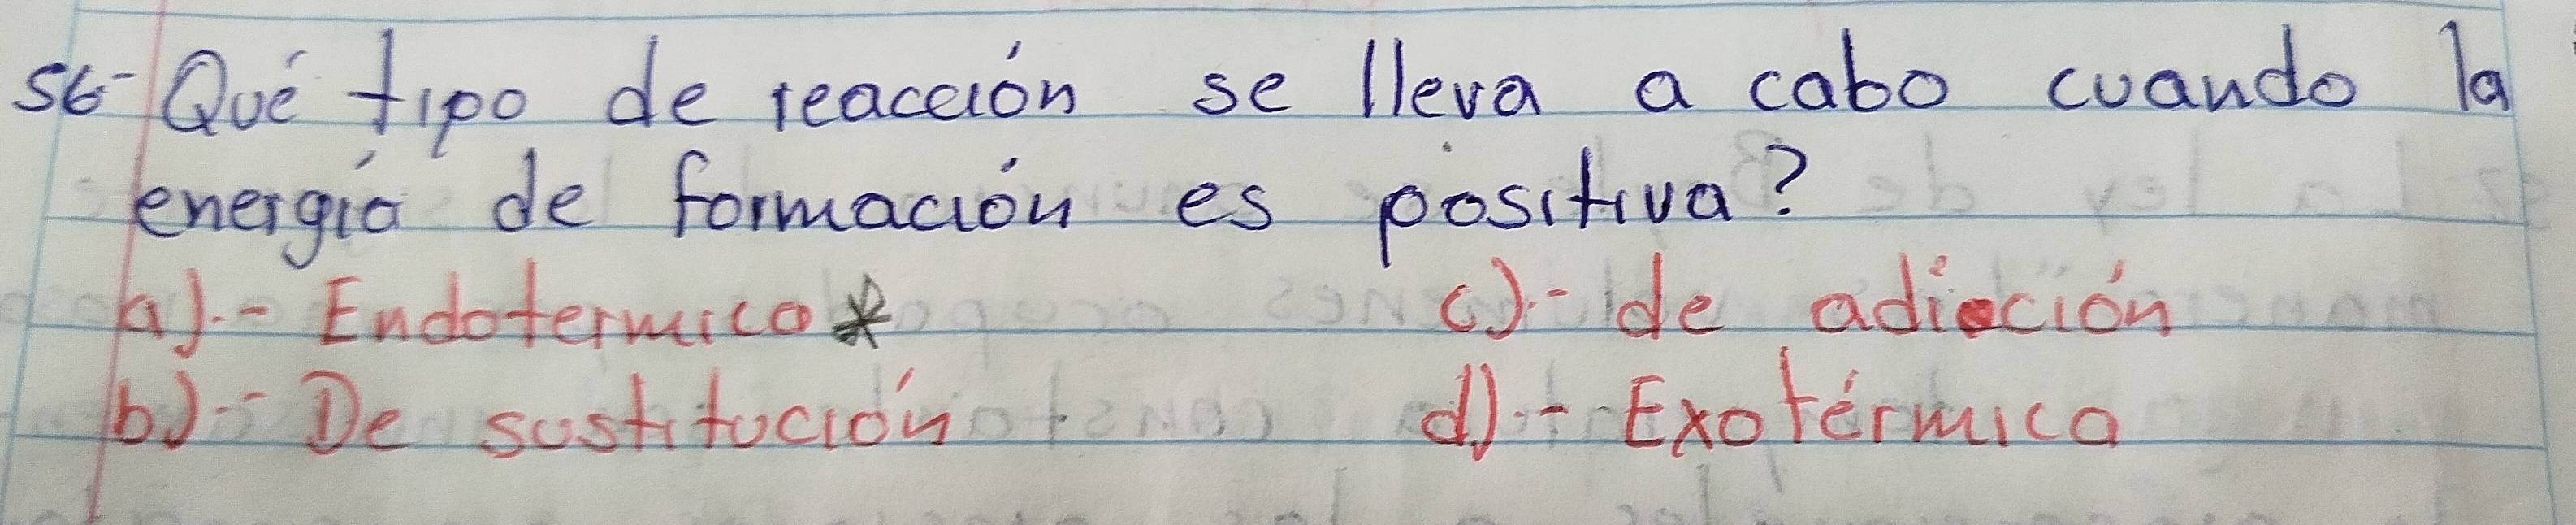 56- Qué tipo de reacción se lleva a cabo cuando la
energía de formación es positiva?
a).- Endotermico * c).- de adición
b).- De sustitución d).- Exotérmica